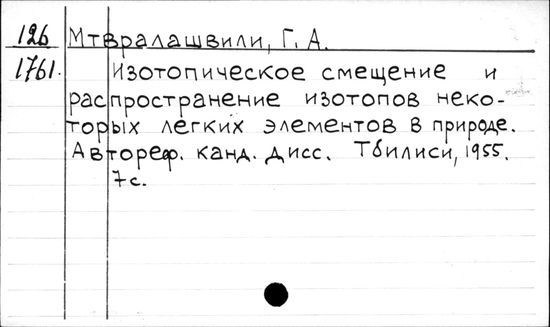 126 Мтвралашвили, Г. А.
1761. Изотопическое смещение и
распространение изотопов неко-
торых легких элементов в природе.
Автореф. канд. дисс. Тбилиси, 1955.
7с.